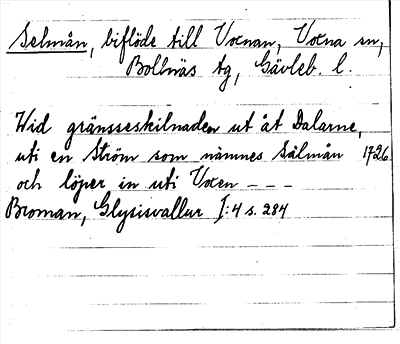 Selmån, biflöde till Voxnan, Voxna sn,
Bollnäs tg, Gävleb. l.
Wid gränsseskilnaden ut åt Dalarne,
uti en Ström som nämnes Sälmån 1726
och löper in uti Voxen - - -
Broman, Glysisvallur I:4 s. 284